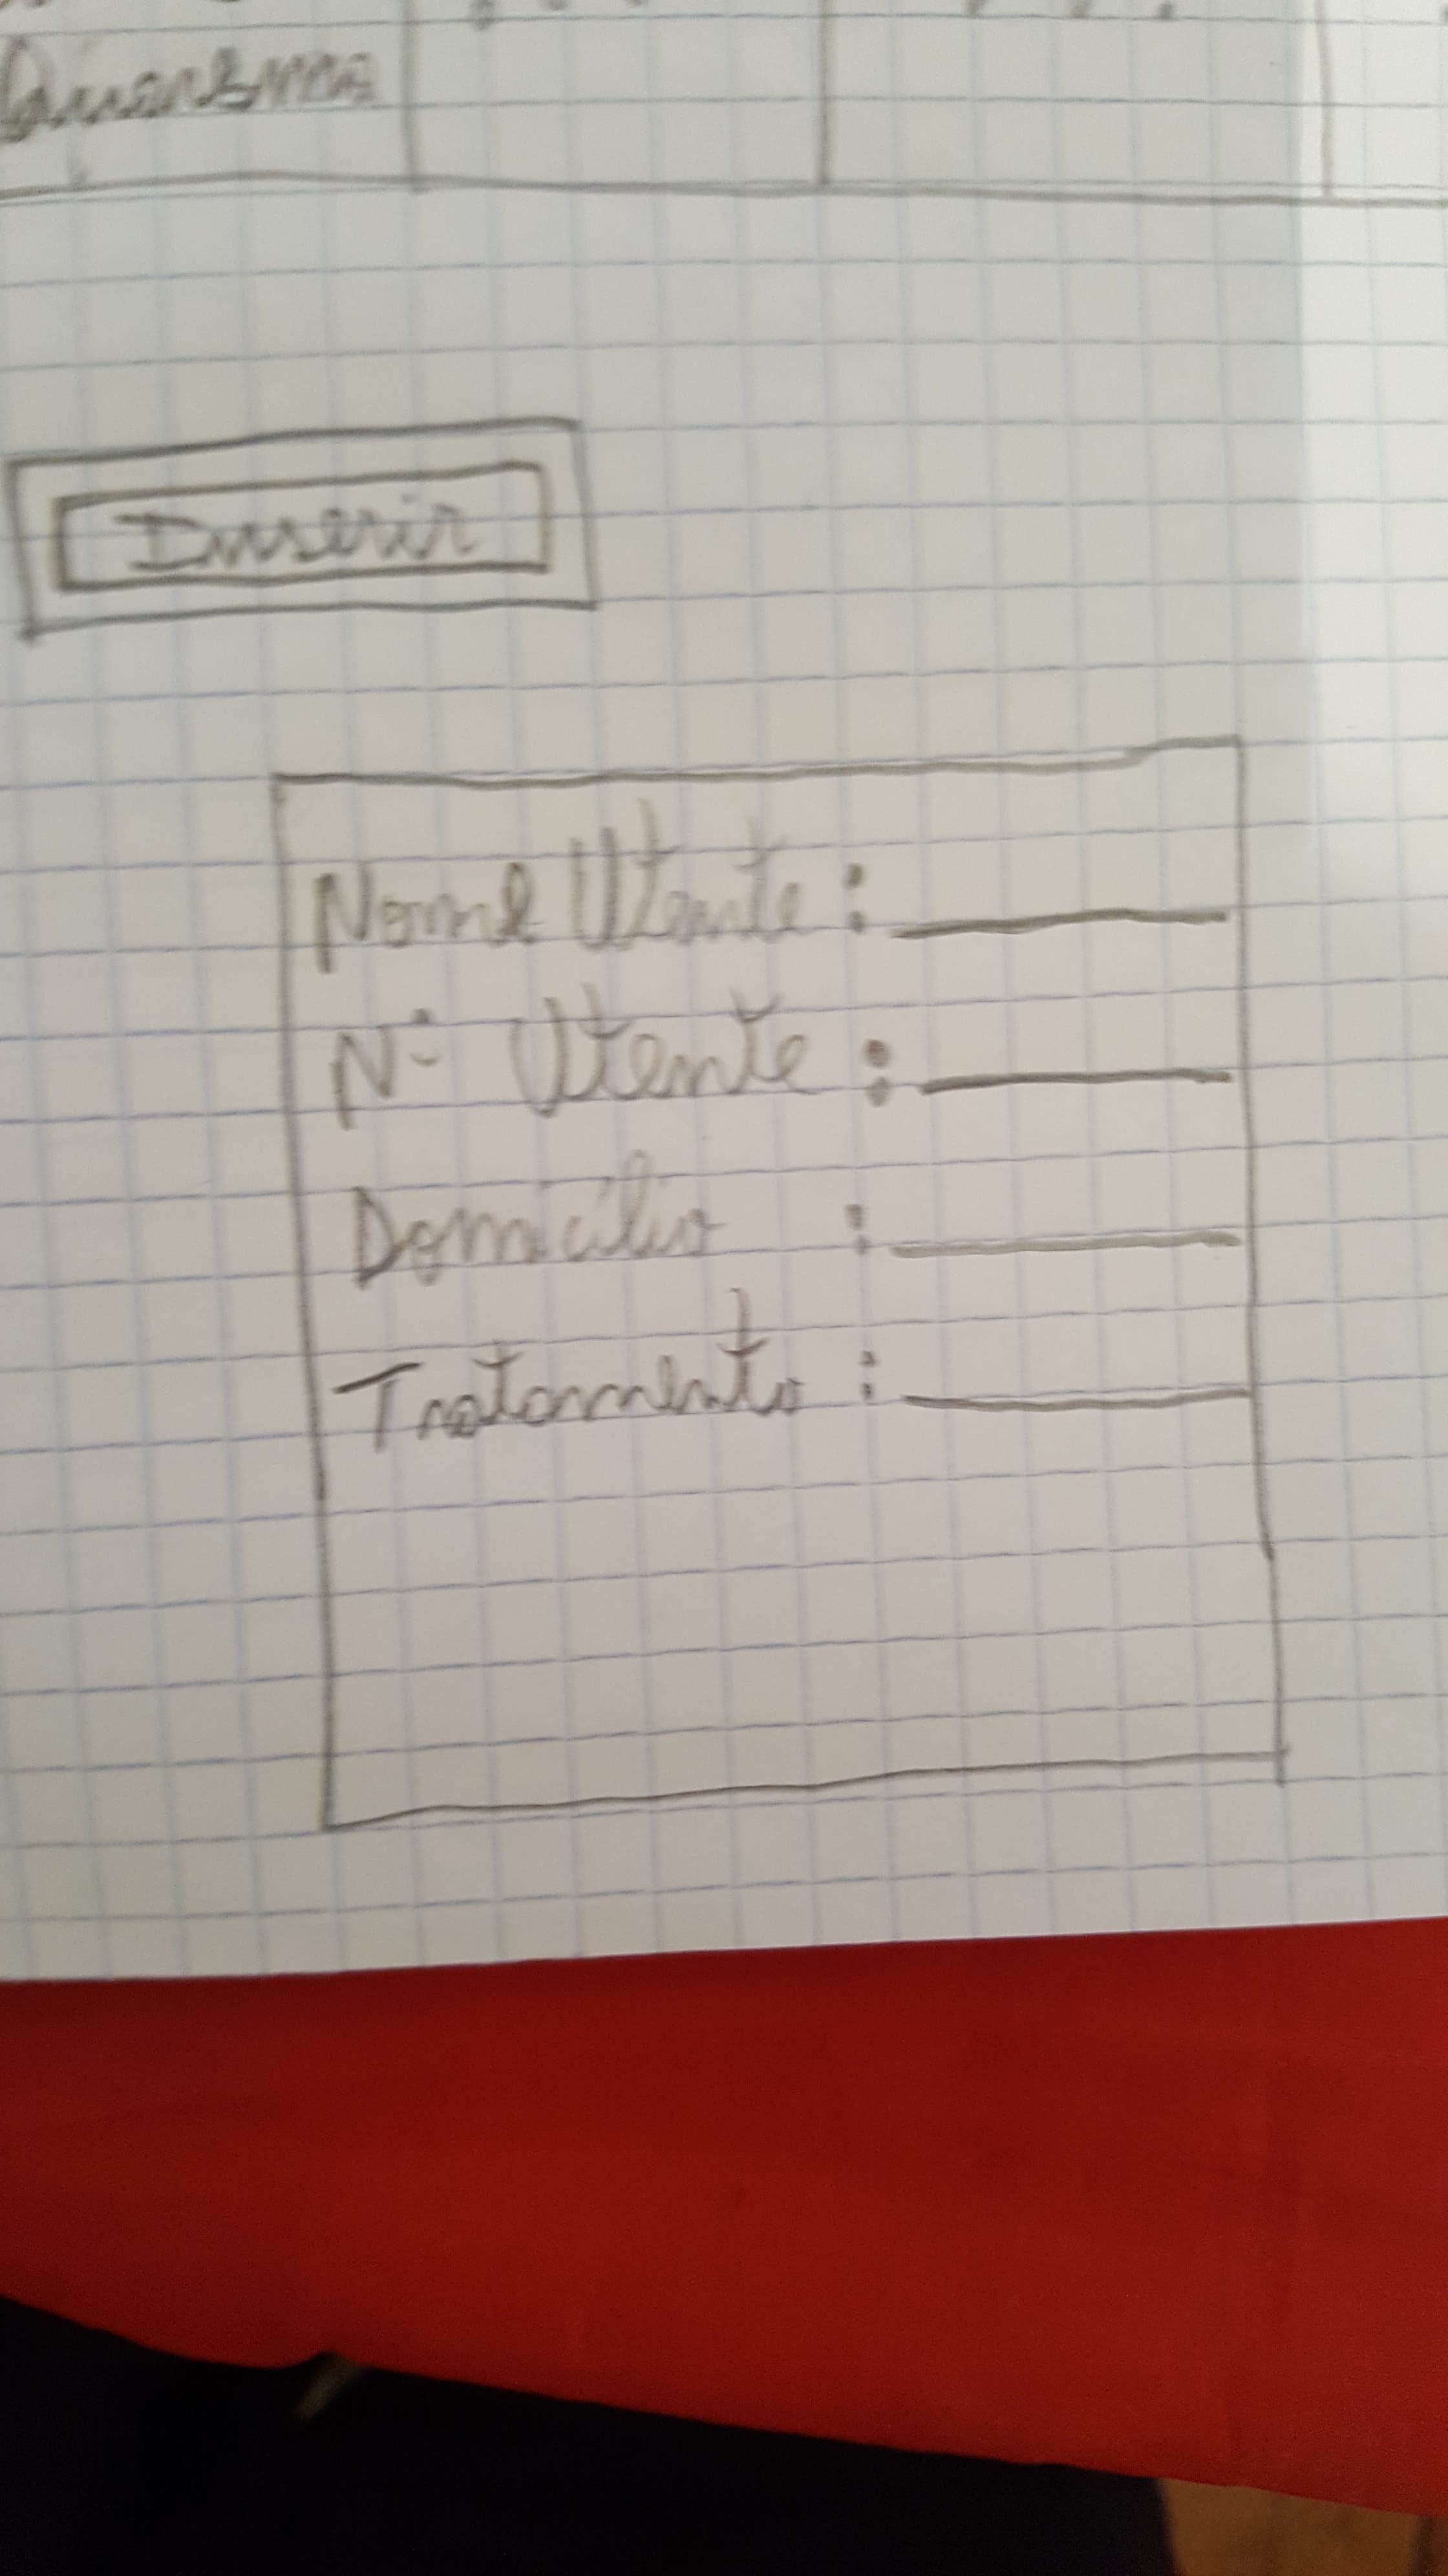 Inserir
Nome Utente :
Nº Utente :
Domicílio :
Tratamento :